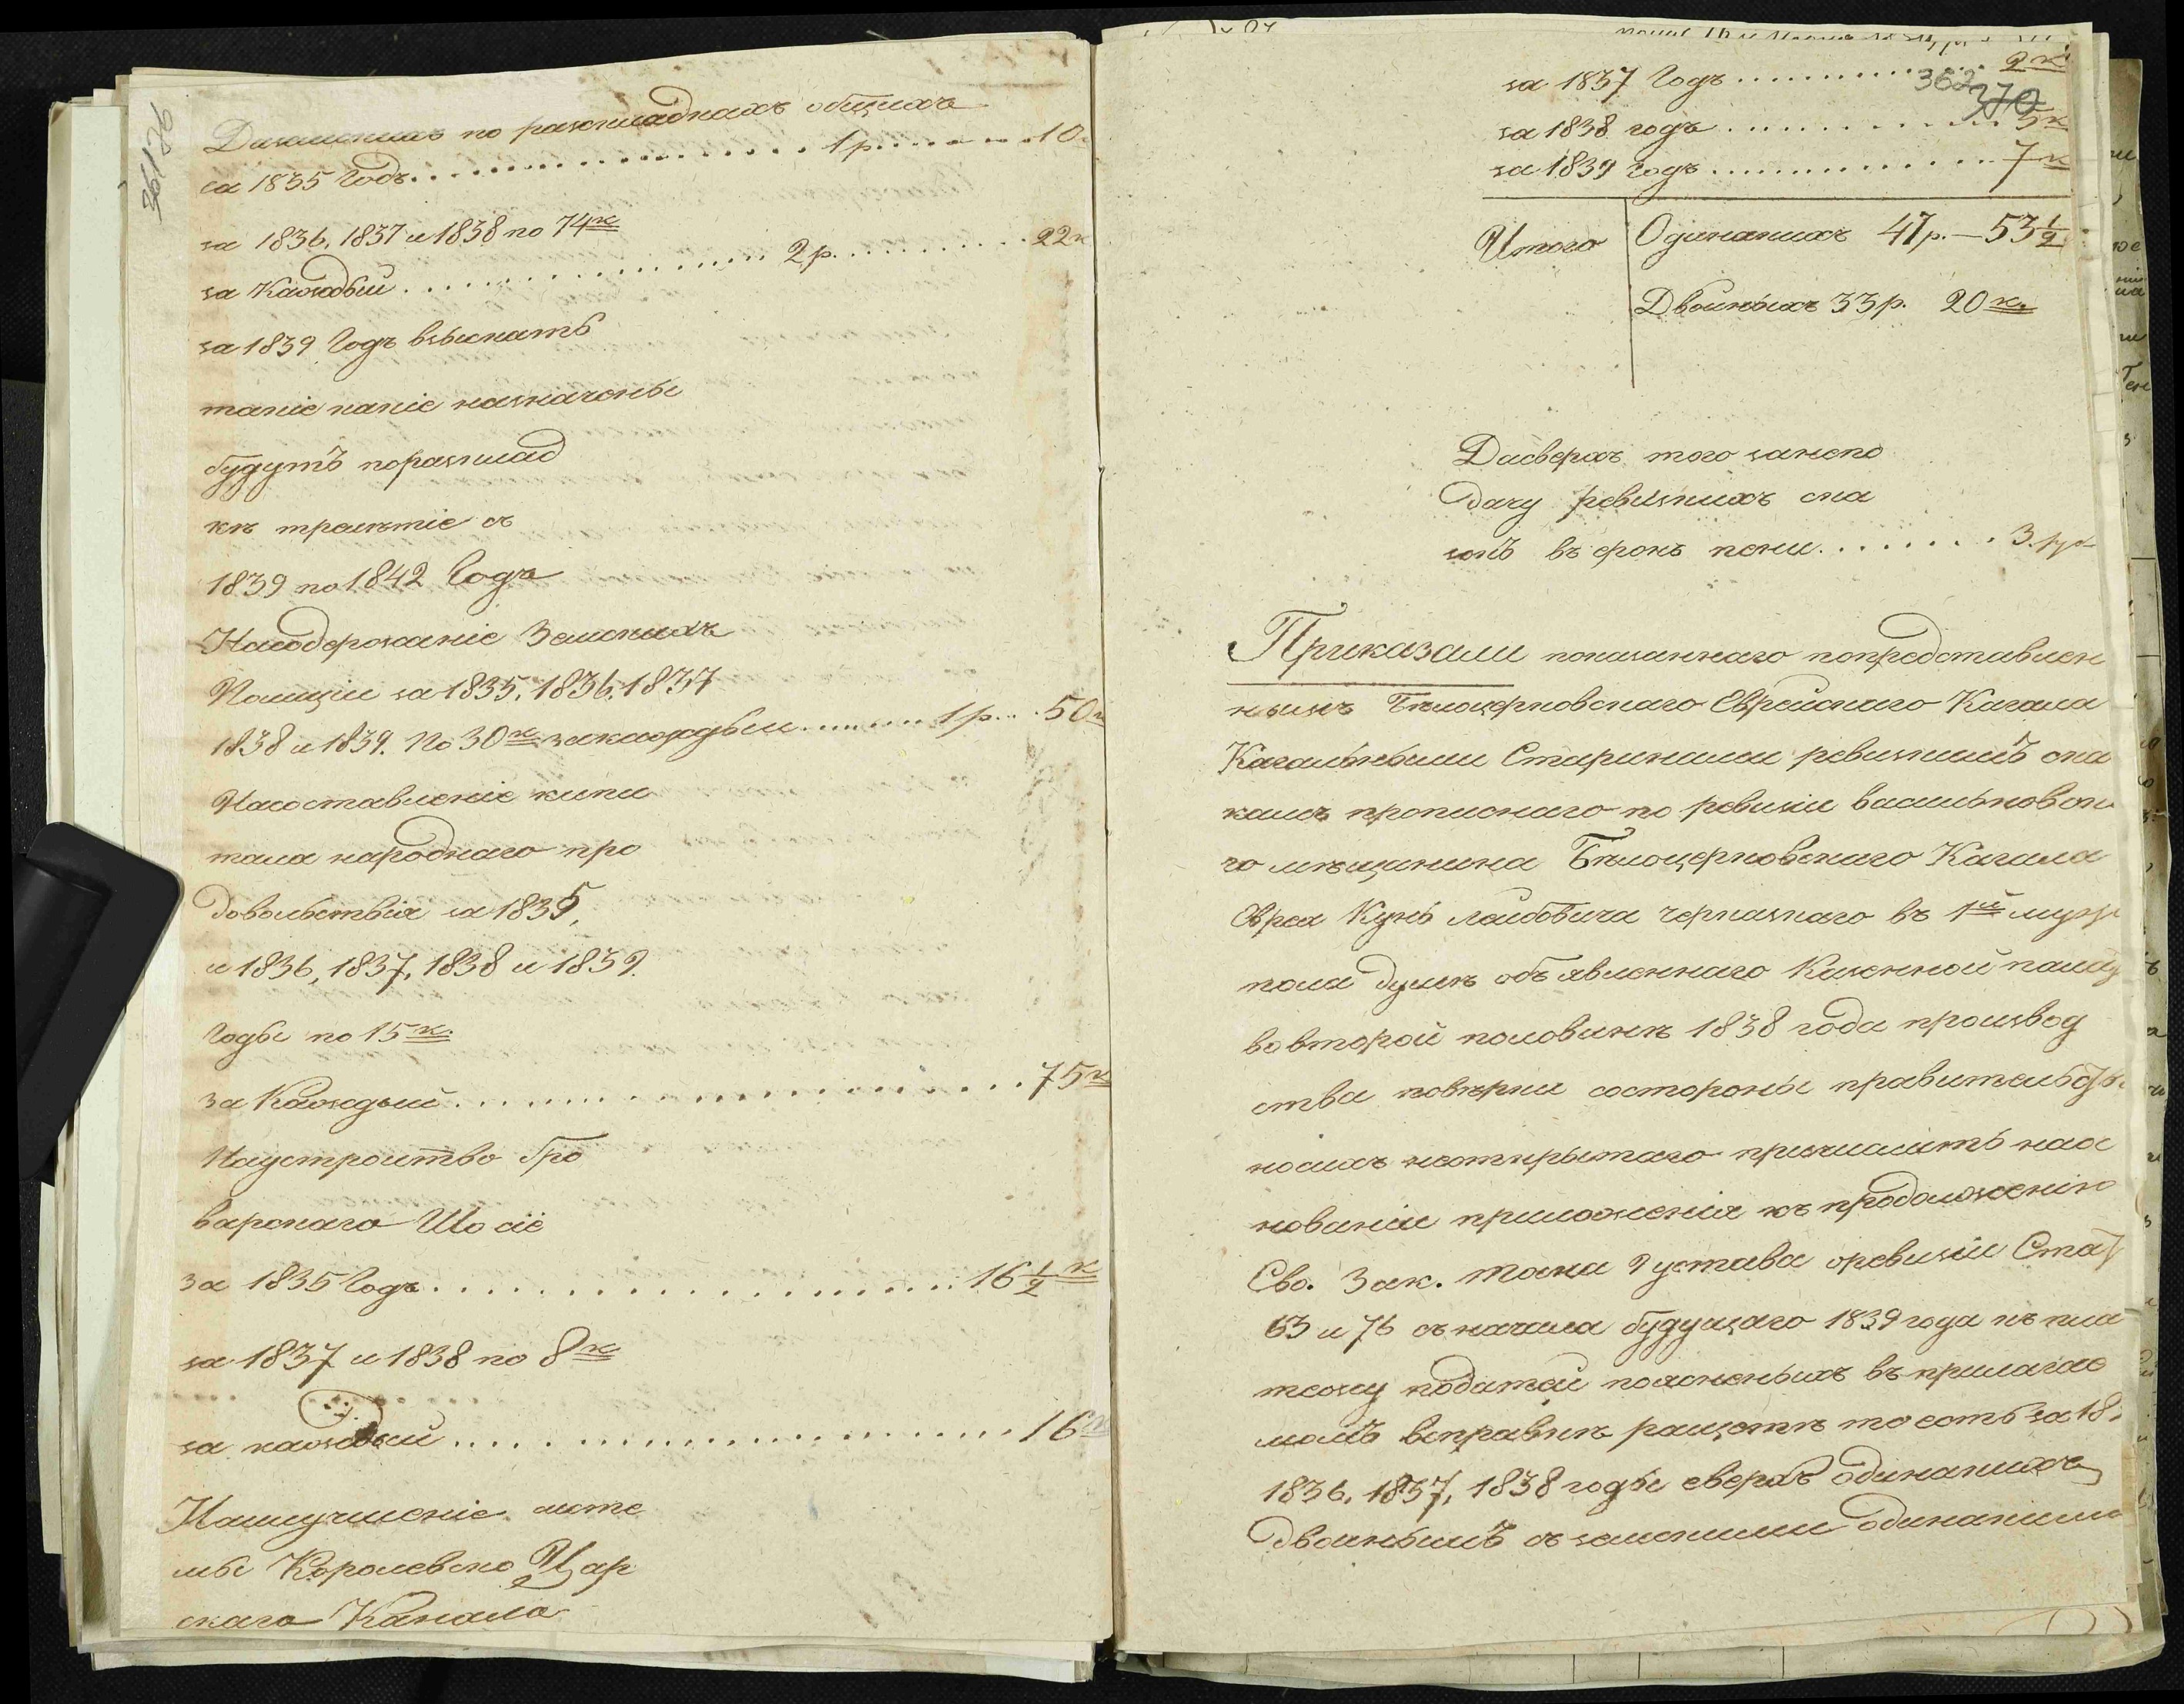 Даземскихъ по разкладкахъ общихъ
за 1835 Годъ 1 р. 10
за 1836, 1837 и 1838 по 74 к
за Каждый 2 р. 22 к
за 1839 Годъ взыскать
такіе какіе назначены
будутъ поразклад
кѣ трелѣтіе съ
1839 по 1842 Годъ
Насодержаніе Земскихъ
Полиціи за 1835, 1836, 1837
1838 и 1839. По 30 к закаждый 1 р. 50 к
Насоставленіе капи
тала народнаго про
довольствія за 1835,
и 1836, 1837, 1838 и 1839.
Годы по 15 к.
за Каждый 75 к
Наустроитво Бро
варскаго Шо сіе
за 1835 Годъ 16 1/2 к
за 1837 и 1838 по 8 к
за каждый 16 к
Наулучшеніе систе
мы Королевско Цар
скаго Канала
за 1837 Годъ 2 к
362 370
за 1838 годъ 5 к
за 1839 Годъ 7 к
Итого Одинакихъ 47 р. — 53 1/2
Двойныхъ 33 р. 20 к.
Дасверхъ того занепо
дачу ревизкихъ ска
зокъ въ срокъ пени 3. руб
Приказали показаннаго попредставлен
нымъ Бѣлоцерковскаго Еврейскаго Кагала
Кагальными Старшинами ревизкимъ ска
камъ прописнаго по ревизіи васильковска
го мѣщанина Бѣлоцерковскаго Кагала
Еврея Кунь лейбовича черкаскаго въ 1й муж
пола душѣ объявленнаго Казенной палат
вовторой половинѣ 1838 года производ
ства повѣрки состороны правительст
номъ неоткрытаго причислить наос
нованіи приложенія къ продолженію
Сво. Зак. тома 9 устава оревизіи Стат
63 и 76 съ начала будущаго 1839 года къ пла
тежу податей поясненыхъ въ прилагае
момъ всправкѣ расщетѣ то есть за 18
1836, 1837, 1838 годы сверхъ одинакихъ
двойнымъ съ земскими одинакими